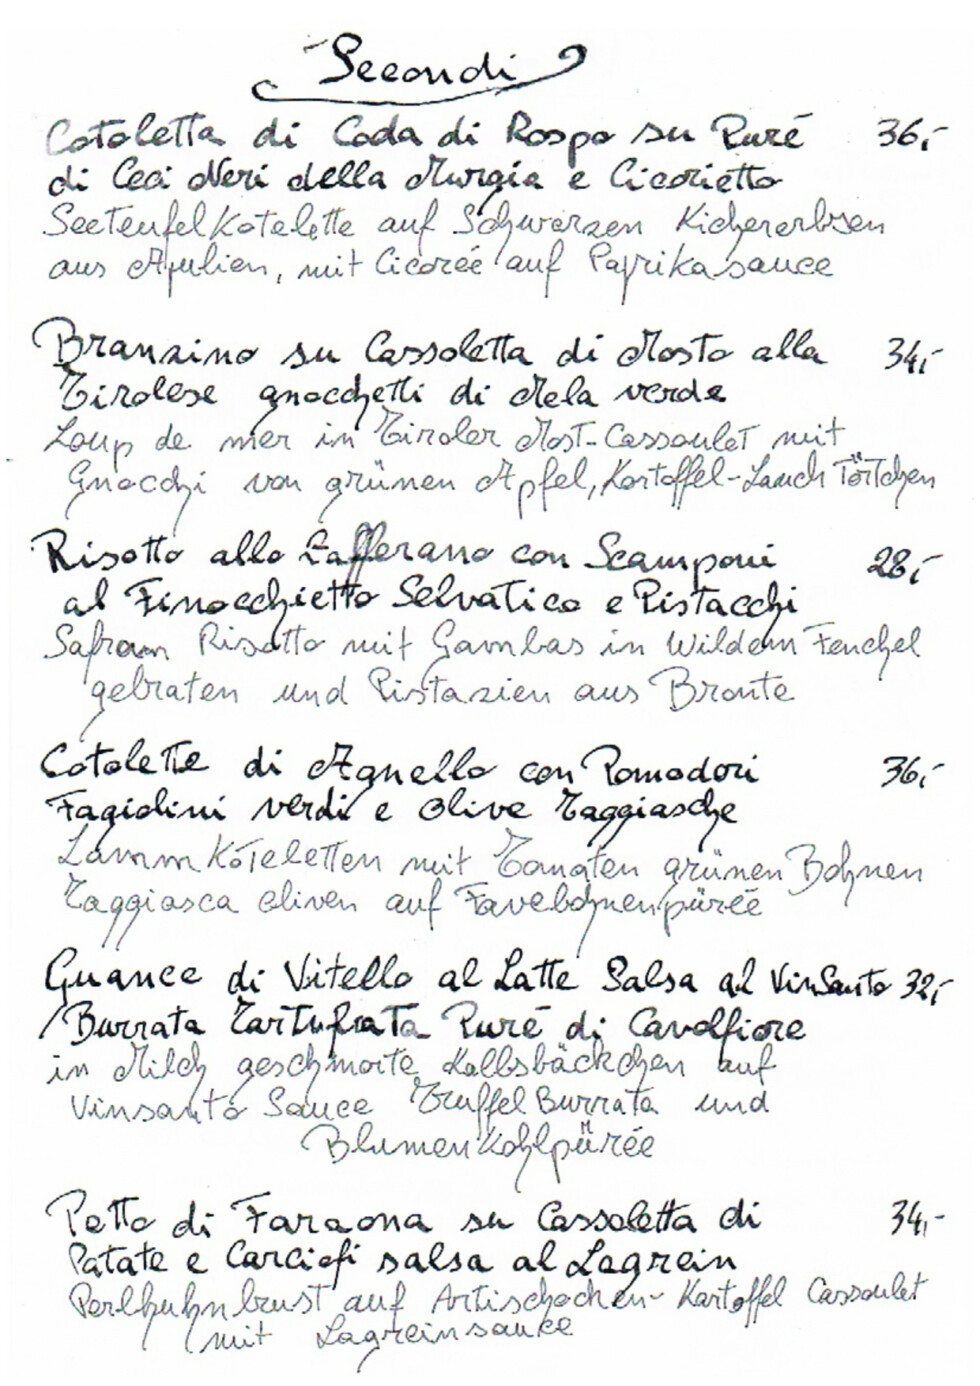 Secondi
Cotoletta di Coda di Rospo su Puré 36,-
di Ceci Neri della Murgia e Cicorietta
Seeteufelkotelette auf Schwarzen Kichererbsen
aus Apulien, mit Cicorée auf Paprikasauce
Branzino su Cassoletta di Mosto alla 34,-
Tirolese gnocchetti di Mela verde
Loup de mer in Tiroler Most-Cassoulet mit
Gnocchi von grünen Apfel, Kartoffel-Lauch Törtchen
Risotto allo Zafferano con Scamponi 28,-
al Finocchietto Selvatico e Pistacchi
Safran Risotto mit Gambas in Wildem Fenchel
gebraten und Pistazien aus Bronte
Cotolette di Agnello con Pomodori 36,-
Fagiolini verdi e Olive Taggiasche
Lamm Köteletten mit Tomaten grünen Bohnen
Taggiasca Oliven auf Favebohnenpüréé
Guance di Vitello al Latte Salsa al VinSanto 32,-
Burrata Tartufata Puré di Cavolfiore
in Milch geschmorte Kalbsbäckchen auf
Vinsanto Sauce Trüffel Burrata und
Blumenkohlpürée
Petto di Faraona su Cassoletta di 34,-
Patate e Carciofi salsa al Lagrein
Perlhuhnbrust auf Artischocken-Kartoffel Cassoulet
mit Lagreinsauce